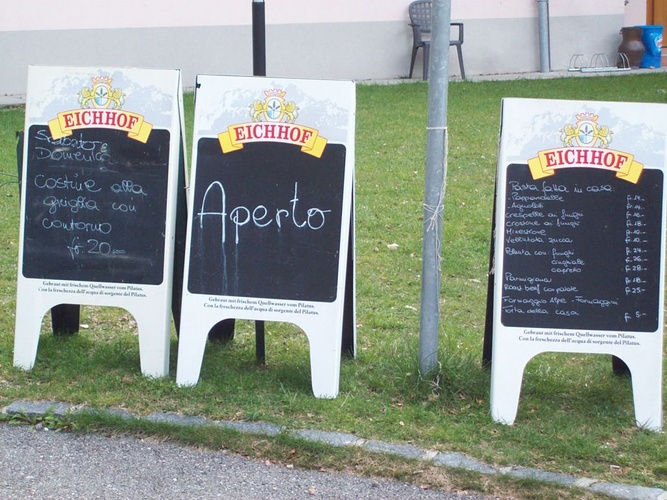 EICHHOF
Sabato e
Domenica
costine alla
griglia con
contorno
fr 20.—
Gebraut mit frischem Quellwasser vom Pilatus.
Con la freschezza dell'acqua di sorgente del Pilatus.
EICHHOF
Aperto
Gebraut mit frischem Quellwasser vom Pilatus.
Con la freschezza dell'acqua di sorgente del Pilatus.
EICHHOF
Pasta fatta in casa
- Pappardelle
- Agnolotti
crespelle ai funghi
crostone ai funghi fr. 18.-
Minestrone
Vellutata zucca
Polenta con funghi
capreto fr. 28.-
Parmigiana fr. 18.-
Roast beef con patate fr. 25.-
Formaggio Alpe - Formaggio
Torta della casa fr. 5.-
Gebraut mit frischem Quellwasser vom Pilatus.
Con la freschezza dell'acqua di sorgente del Pilatus.